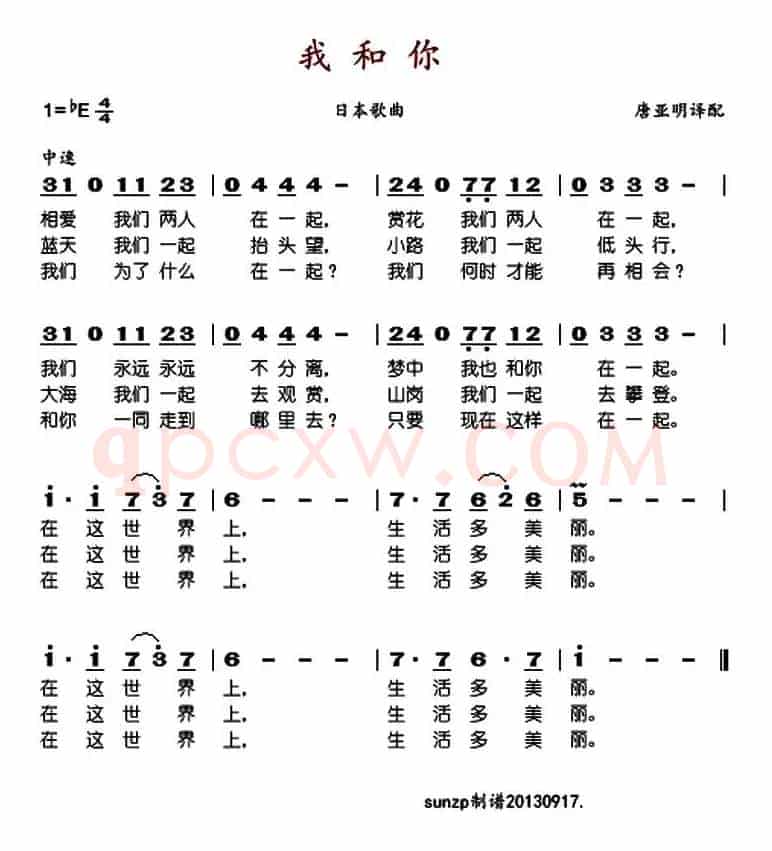 我和你
1=♭E 4/4 日本歌曲 唐亚明译配
中速
31 0 11 23 | 0 4 4 4 – | 24 0 77 12 | 0 3 3 3 – |
相爱 我们 两人 在 一 起, 赏花 我们 两人 在 一 起,
蓝天 我们 一起 抬 头 望, 小路 我们 一起 低 头 行,
我们 为了 什么 在 一 起? 我们 何时 才能 再 相 会?
31 0 11 23 | 0 4 4 4 – | 24 0 77 12 | 0 3 3 3 – |
我们 永远 永远 不 分 离, 梦中 我也 和你 在 一 起。
大海 我们 一起 去 观 赏, 山岗 我们 一起 去 攀 登。
和你 一同 走到 哪 里 去? 只要 现在 这样 在 一 起。
qpcxw.COM
i · i 7 3 7 | 6 – – – | 7 · 7 6 2 6 | 5 – – – |
在 这 世 界 上, 生 活 多 美 丽。
在 这 世 界 上, 生 活 多 美 丽。
在 这 世 界 上, 生 活 多 美 丽。
i · i 7 3 7 | 6 – – – | 7 · 7 6 · 7 | i – – – ‖
在 这 世 界 上, 生 活 多 美 丽。
在 这 世 界 上, 生 活 多 美 丽。
在 这 世 界 上, 生 活 多 美 丽。
sunzp制谱20130917.